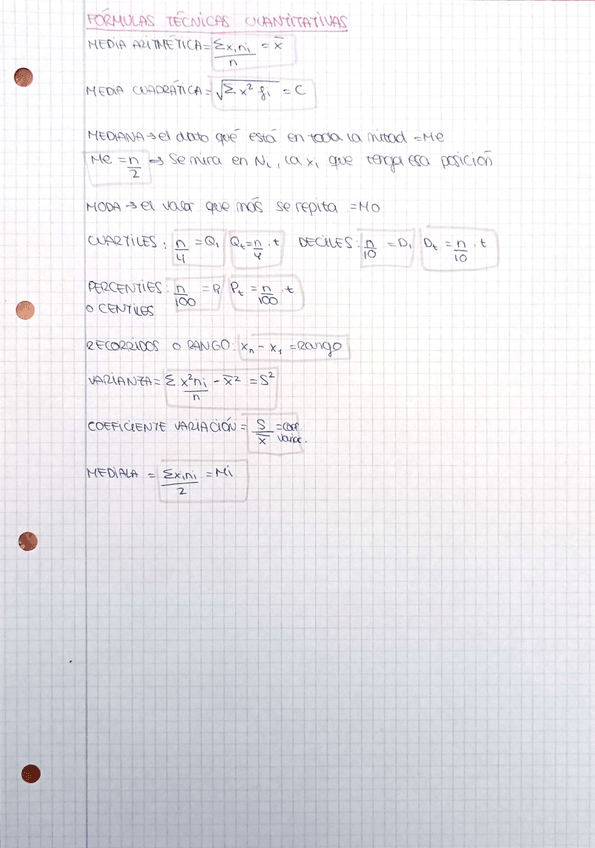 FÓRMULAS TÉCNICAS CUANTITATIVAS
MEDIA ARITMÉTICA = Σxᵢnᵢ/n = x̄
MEDIA CUADRÁTICA = √Σx² fᵢ = C
MEDIANA → el dato qué está en toda la mitad = Me
Me = n/2 → Se mira en Nᵢ, la xᵢ que tenga esa posición
MODA → el valor que más se repita = MO
CUARTILES: n/4 = Q₁ Qt = n/4 · t DECILES: n/10 = D₁ Dt = n/10 · t
PERCENTILES: n/100 = P₁ Pt = n/100 · t
O CENTILES
RECORRIDOS O RANGO: xₙ - x₁ = Rango
VARIANZA = Σ x²nᵢ/n - x̄² = S²
COEFICIENTE VARIACIÓN = S/x̄ = coef variac.
MEDIALA = Σxᵢnᵢ/2 = Mi